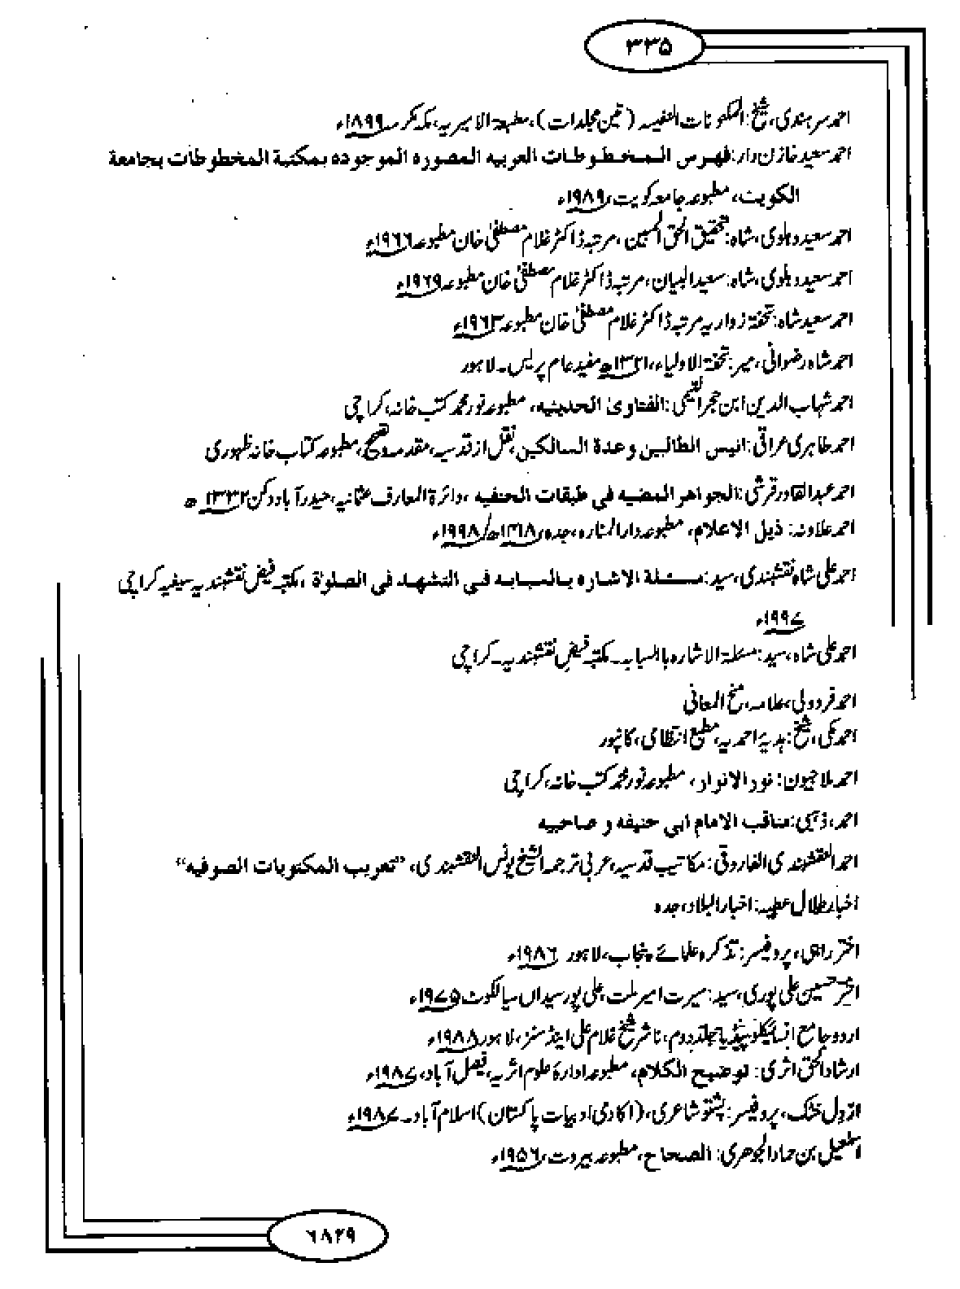 ۳۳۵
احمد سرہندی، شیخ: المکتوبات النفیسہ (تین مجلدات)، مطبعۃ الامیریہ، مکہ مکرمہ ۱۸۹۹ء
احمد سعید خازن دار: فهرس المخطوطات العربیه المصوره الموجوده بمکتبة المخطوطات بجامعة
الکویت، مطبوعہ جامعہ کویت، ۱۹۸۹ء
احمد سعید دہلوی، شاہ: تحقیق الحق المبین، مرتبہ ڈاکٹر غلام مصطفیٰ خان مطبوعہ ۱۹۶۶ء
احمد سعید دہلوی، شاہ: سعید البیان، مرتبہ ڈاکٹر غلام مصطفیٰ خان مطبوعہ ۱۹۶۹ء
احمد سعید شاہ: تحفۃ زواریہ مرتبہ ڈاکٹر غلام مصطفیٰ خان مطبوعہ ۱۹۶۳ء
احمد شاہ رضوانی، میر: تحفۃ الاولیاء، ۱۳۲۱ھ مفید عام پریس۔ لاہور
احمد شہاب الدین ابن حجر الہیتمی: الفتاویٰ الحدیثیه، مطبوعہ نور محمد کتب خانہ، کراچی
احمد طاہری عراقی: انیس الطالبین و عدة السالکین نقل از قدسیہ، مقدمہ و تصحیح، مطبوعہ کتاب خانہ ظہوری
احمد عبدالقادر قرشی: الجواهر المضیه فی طبقات الحنفیه، دائرۃ المعارف عثمانیہ، حیدرآباد دکن ۱۳۳۲ھ
احمد علاونہ: ذیل الاعلام، مطبوعہ دارالمنارہ، جدہ، ۱۴۱۸ھ/۱۹۹۸ء
احمد علی شاہ نقشبندی، سید: مسئلة الاشاره بالسبابه فی التشهد فی الصلوٰة، مکتبہ فیض نقشبندیہ سیفیہ کراچی
۱۹۹۷ء
احمد علی شاہ، سید: مسئلۃ الاشارہ بالسبابہ۔ مکتبہ فیض نقشبندیہ۔ کراچی
احمد فردولی، علامہ، منح المعانی
احمد مکی، شیخ: ہدیۂ احمدیہ، مطبع انتظامی، کانپور
احمد ملا جیون: نور الانوار، مطبوعہ نور محمد کتب خانہ، کراچی
احمد، ذہبی: مناقب الامام ابی حنیفه و صاحبیه
احمد النقشبندی الفاروقی: مکاتیب قدسیہ، عربی ترجمہ الشیخ یونس النقشبندی، ”تعریب المکتوبات الصوفیه“
اخبار طلال عطیہ: اخبار البلاد، جدہ
اختر راہی، پروفیسر: تذکرہ علمائے پنجاب، لاہور ۱۹۸۶ء
اختر حسین علی پوری، سید: سیرت امیر ملت، علی پور سیداں سیالکوٹ ۱۹۷۵ء
اردو جامع انسائیکلوپیڈیا جلد دوم، ناشر شیخ غلام علی اینڈ سنز، لاہور ۱۹۸۸ء
ارشاد الحق اثری: توضیح الکلام، مطبوعہ ادارۂ علوم اثریہ، فیصل آباد، ۱۹۸۷ء
ازدل خٹک، پروفیسر: پشتو شاعری، (اکادمی ادبیات پاکستان) اسلام آباد۔ ۱۹۸۷ء
اسمٰعیل بن حماد الجوھری: الصحاح، مطبوعہ بیروت، ۱۹۵۶ء
۶۸۲۹